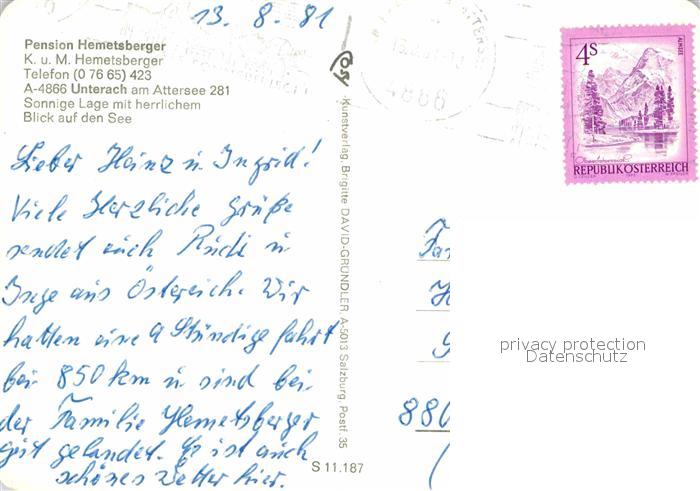 13. 8. 81
Pension Hemetsberger
K. u. M. Hemetsberger
Telefon (0 76 65) 423
A-4866 Unterach am Attersee 281
Sonnige Lage mit herrlichem
Blick auf den See
Lieber Heinz u. Ingrid!
Viele Herzliche Grüße
sendet euch Rudi u
Inge aus Östereich. Wir
hatten eine 9 Stündige fahrt
bei 850 km u sind bei
der Familie Hemetsberger
gut gelandet. Es ist auch
schönes Wetter hier.
Kunstverlag, Brigitte DAVID-GRÜNDLER, A-5013 Salzburg, Postf. 35
S 11.187
4866
4S
ALMSEE
Oberösterreich
REPUBLIK ÖSTERREICH
880
privacy protection
Datenschutz